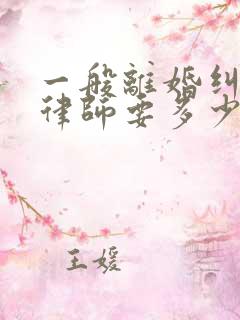 一般離婚纠
律師要多少
王媛